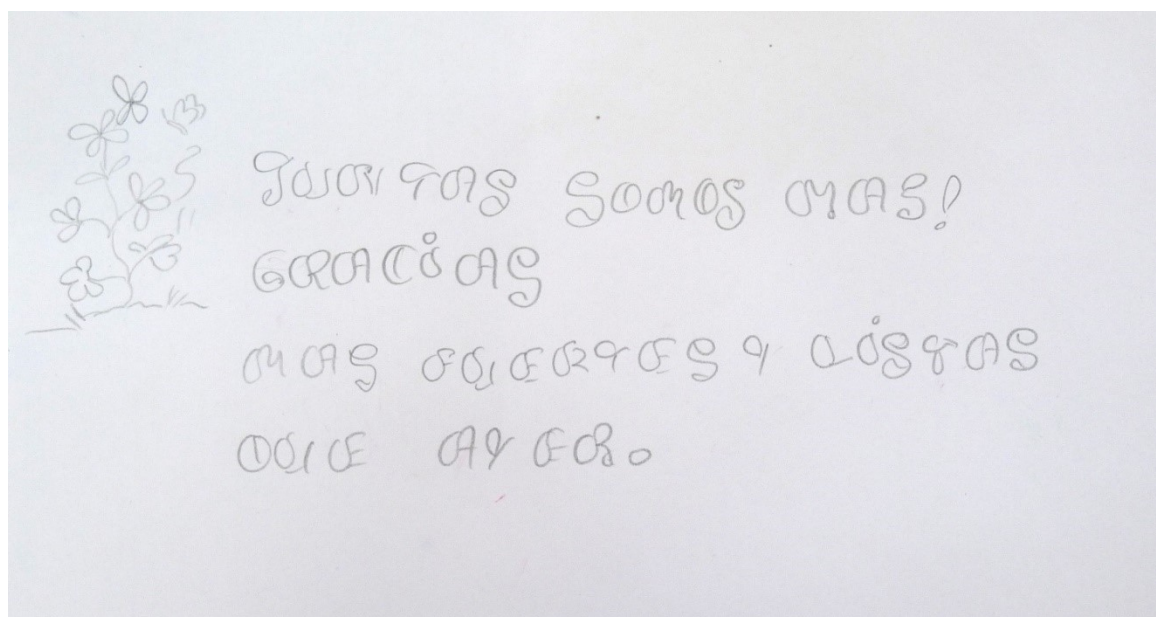 JUNTAS SOMOS MAS!
GRACiAS
MAS FUERTES Y LiSTAS
QUE AYER.